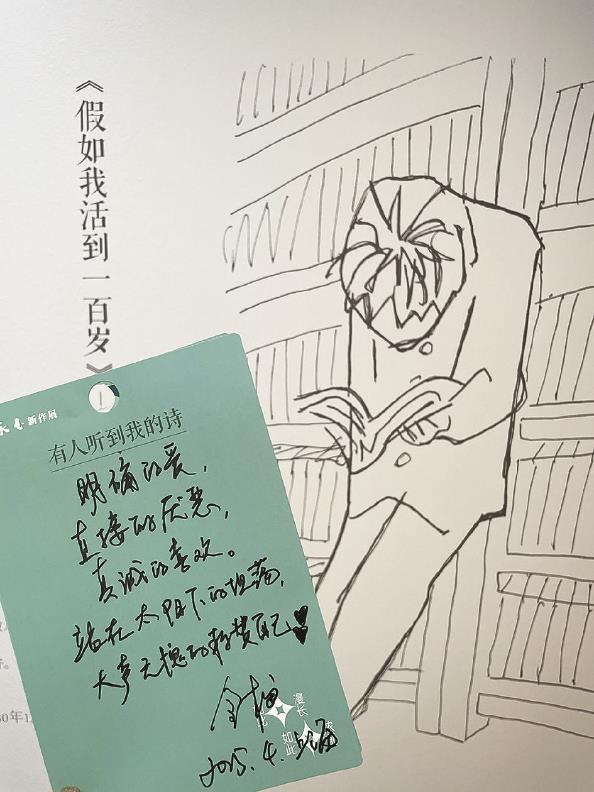 《假如我活到一百岁》
新作展
有人听到我的诗
明确的爱，
直接的厌恶，
真诚的喜欢。
站在太阳下的坦荡，
大声无愧的称赞自己
漫长
如此
2025.4.上海